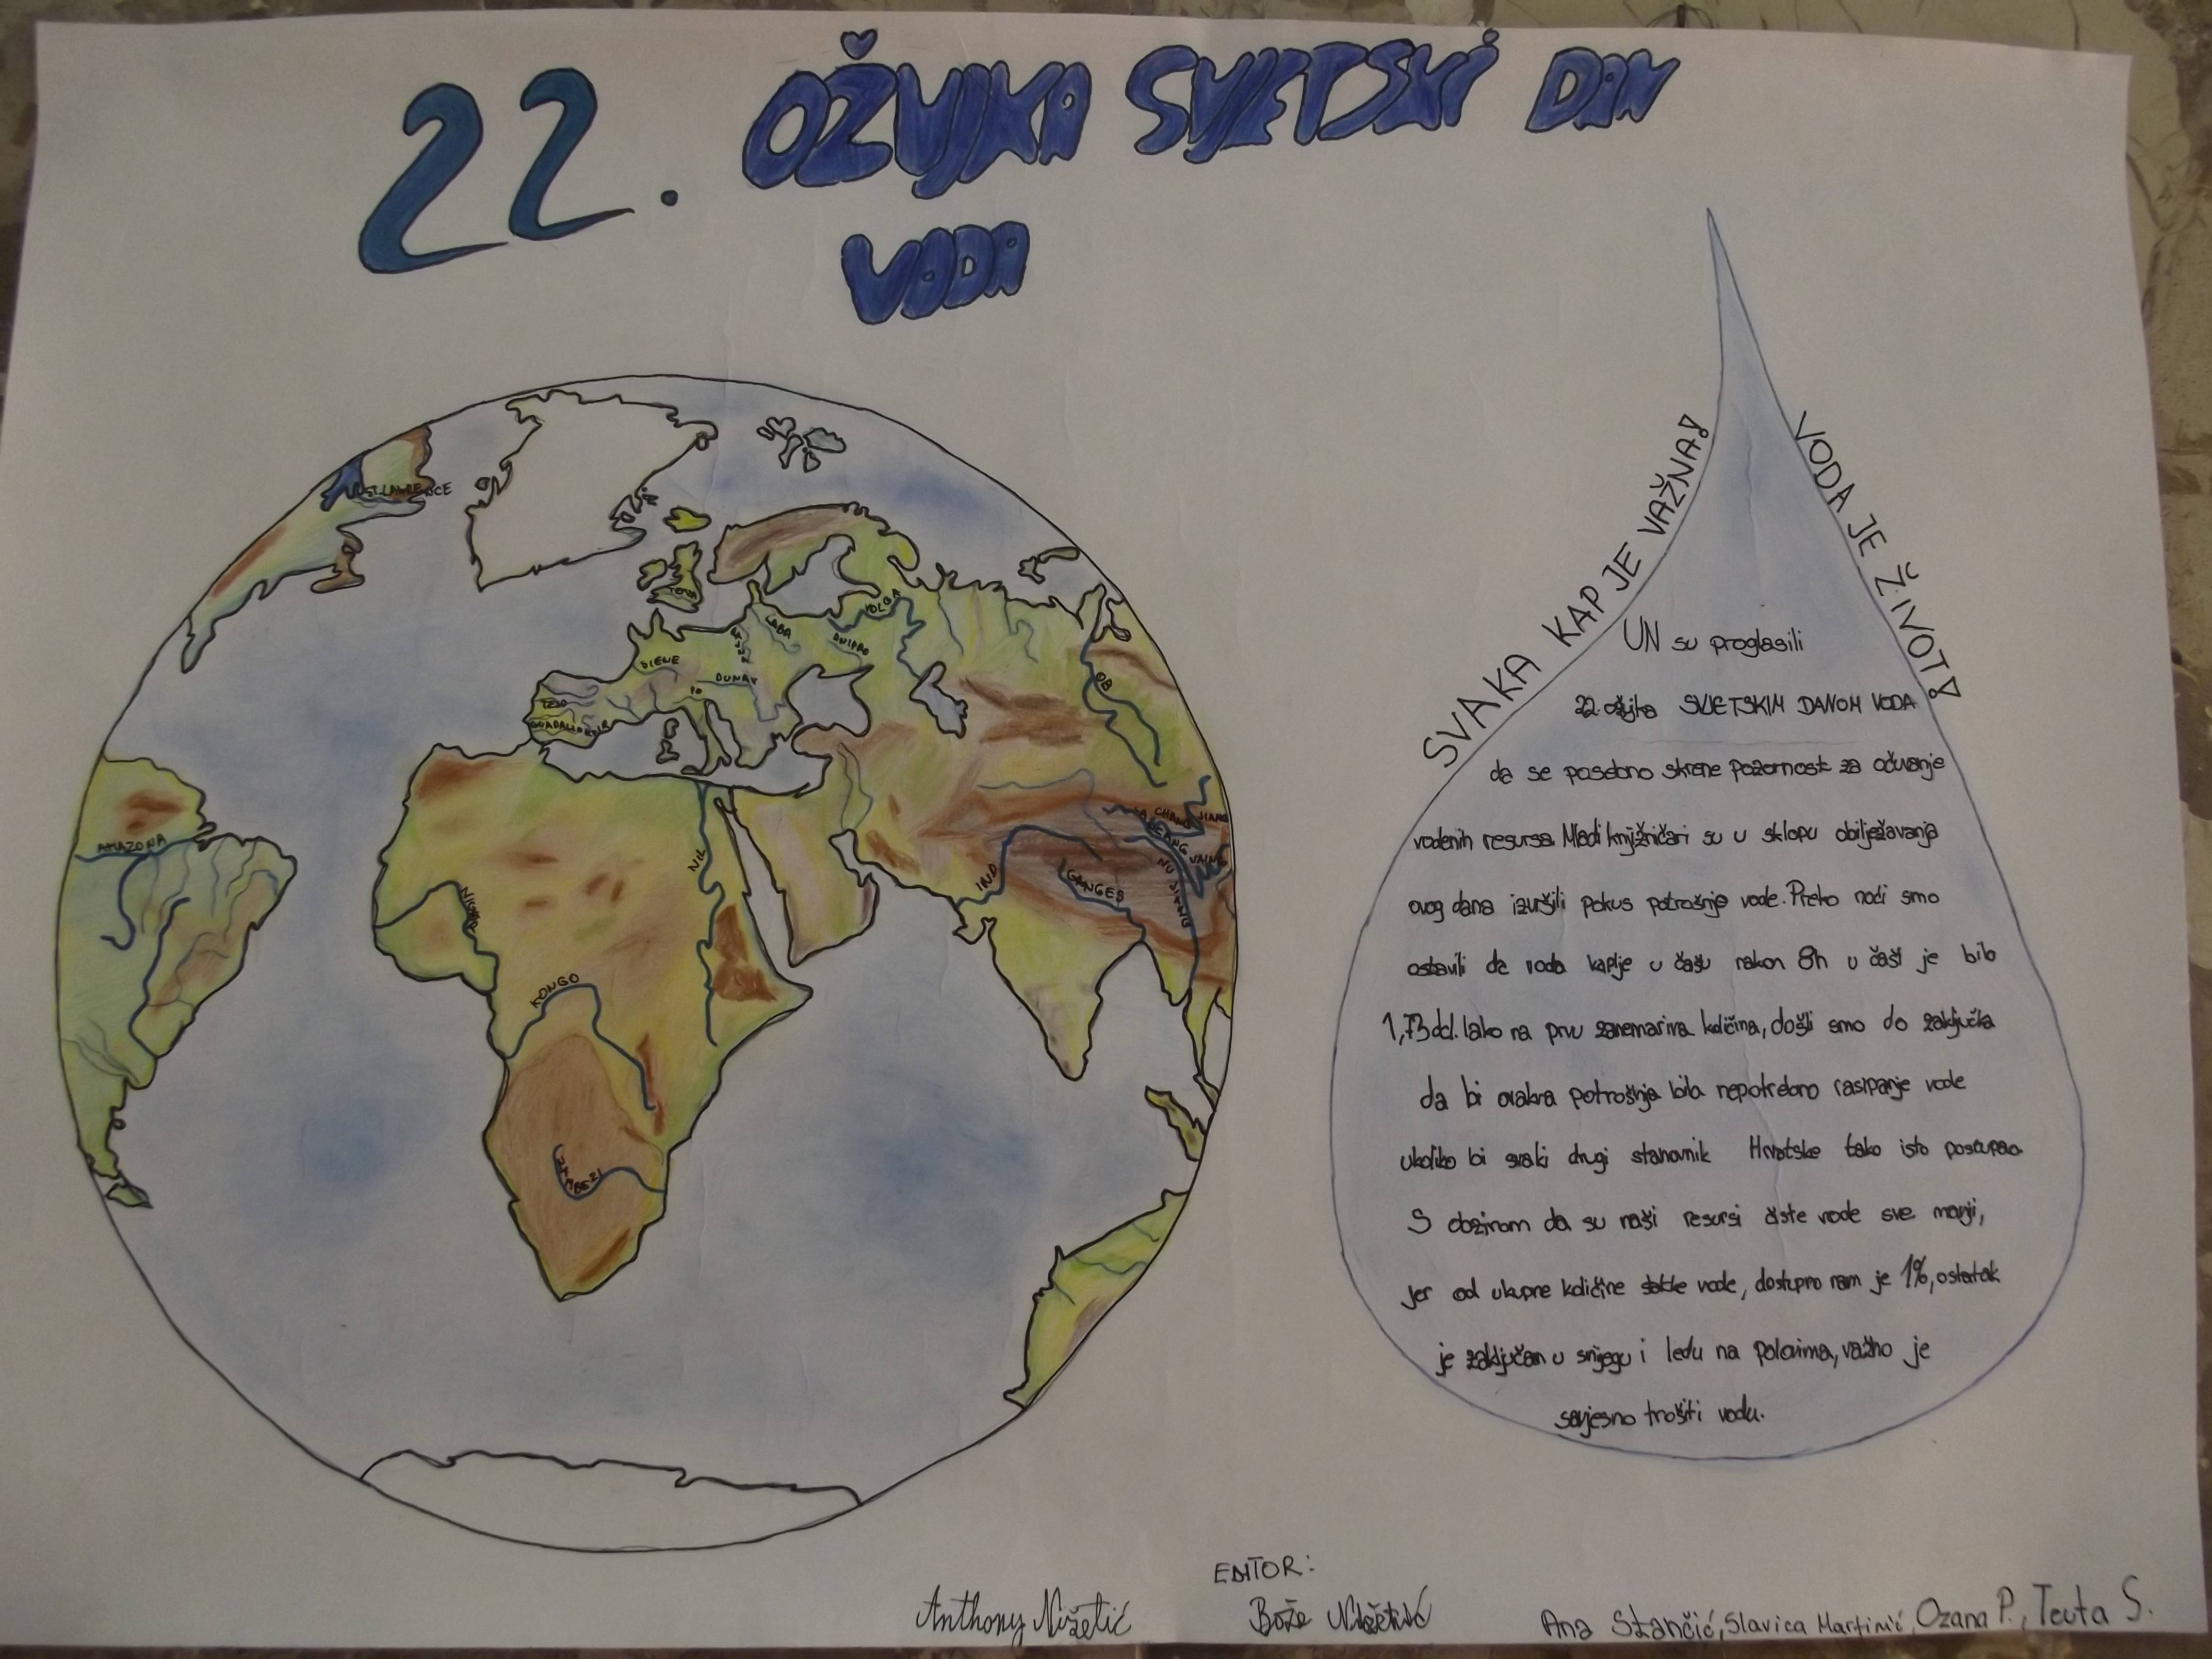 22. OŽUJKA SVJETSKI DAN
VODA
ST. LAWRENCE
VOLGA
LABA
DNIPRO
DUNAV
PO
TEJO
OB
AMAZONA
NIL
NIGER
KONGO
ZAMBEZI
IND
GANGES
CHANG JIANG
NU JIANG
SVAKA KAP JE VAŽNA!
VODA JE ŽIVOT!
UN su proglasili
22. ožujka SVJETSKIM DANOM VODA
da se posebno skrene pozornost za očuvanje
vodenih resursa. Mladi knjižničari su u sklopu obilježavanja
ovog dana izvršili pokus potrošnje vode. Preko noći smo
ostavili da voda kaplje u čašu nakon 8h u čaši je bilo
1,73 dcl. Iako na prvu zanemariva količina, došli smo do zaključka
da bi ovakva potrošnja bila nepotrebno rasipanje vode
ukoliko bi svaki drugi stanovnik Hrvatske tako isto postupao
S obzirom da su naši resursi čiste vode sve manji,
jer od ukupne količine slatke vode, dostupno nam je 1%, ostatak
je zaključan u snijegu i ledu na polovima, važno je
savjesno trošiti vodu.
EDITOR:
Anthony Nižetić
Bože Nižetić
Ana Stančić, Slavica Martinić, Ozana P., Teuta S.